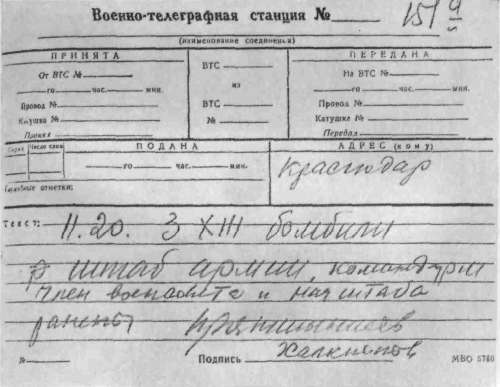 Военно-телеграфная станция №
(наименование соединенья)
ПРИНЯТА
От ВТС №
го час. мин.
Провод №
Катушка №
Принял
ВТС
из
ВТС
№
ПЕРЕДАНА
На ВТС №
го час. мин.
Провод №
Катушка №
Передал
Серия Число слов
ПОДАНА
го час. мин.
Служебные отметки:
АДРЕС (кому)
Краснодар
ТЕКСТ: 11.20. 3 XIII бомбили
штаб армии, командующий
член военсовета и нач штаба
ранены
Подпись
№
МВО 5760